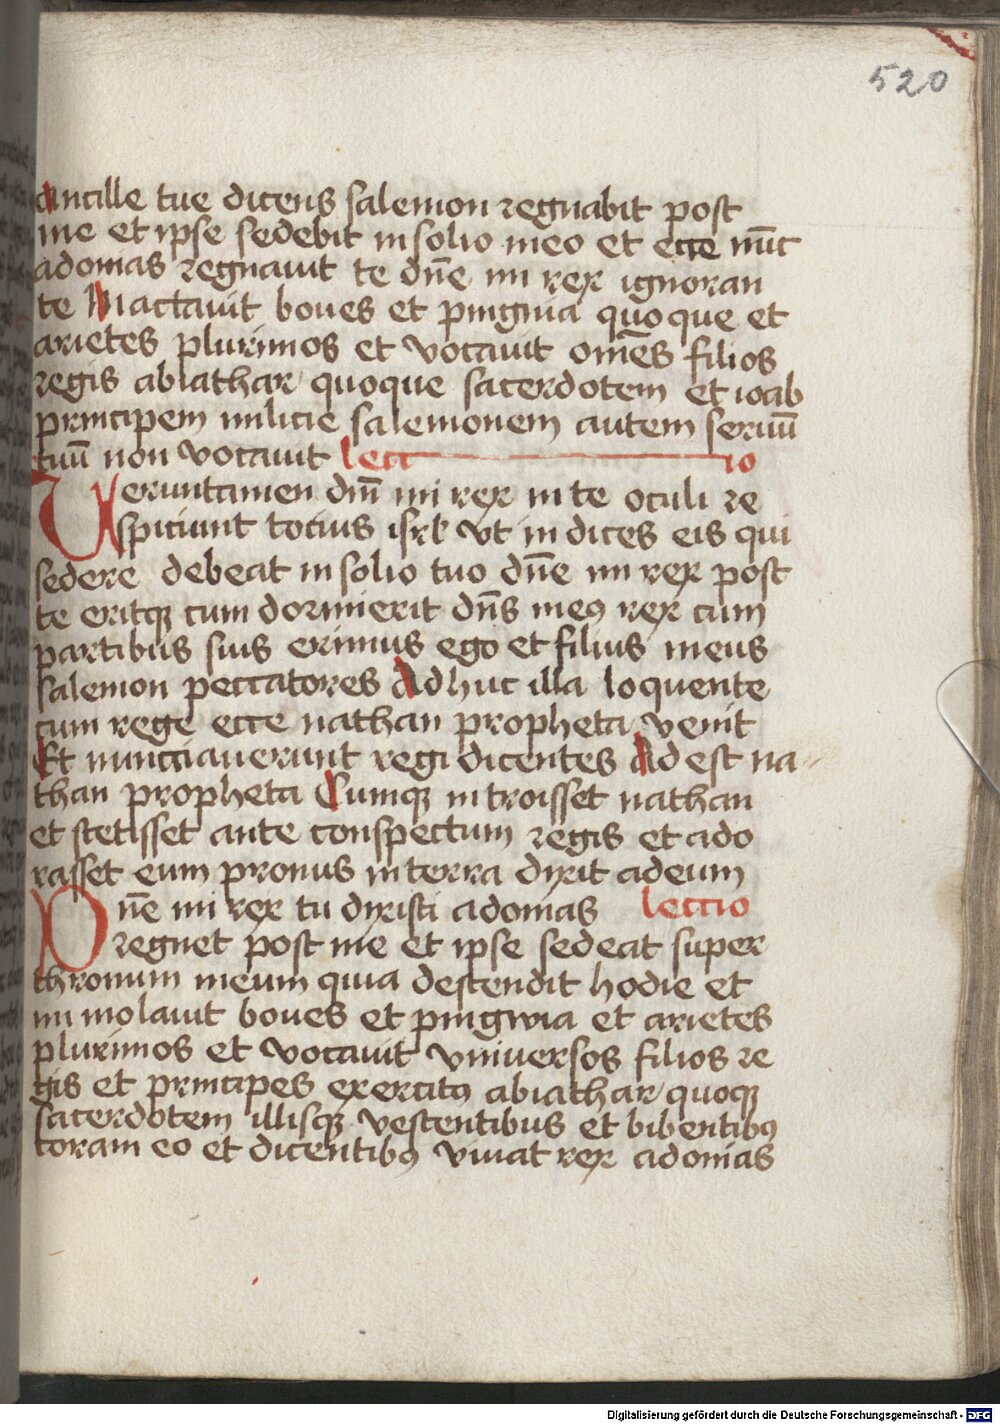 520
Ancille tue dicens salemon regnabit post
me et ipse sedebit in solio meo et ecce nūc
adonias regnauit te dn̄e mi rex ignoran
te Mactauit boues et pingwia quoque et
arietes plurimos et vocauit om̄es filios
regis abiathar quoque sacerdotem et ioab
principem milicie salemonem autem seruū
tuū non vocauit lectio
Veruntamen dm̄ mi rex in te oculi re
spiciunt tocius isrl vt indices eis qui
sedere debeat in solio tuo dn̄e mi rex post
te eritqꝫ cum dormierit dn̄s meꝯ rex cum
partibus suis erimus ego et filius meus
salemon peccatores Adhuc illa loquente
cum rege ecce nathan propheta venit
Et nunciauerunt regi dicentes Adest na
than propheta Cumqꝫ introisset nathan
et stetisset ante conspectum regis et ado
rasset eum pronus in terra dyxit ad eum
Dn̄e mi rex tu dyxisti adonias lectio
regnet post me et ipse sedeat super
thronum meum quia descendit hodie et
immolauit boues et pingwia et arietes
plurimos et vocauit vniuersos filios re
gis et principes exercitꝯ abiathar quoqꝫ
sacerdotem illisqꝫ vescentibus et bibentibꝯ
coram eo et dicentibꝯ viuat rex adonias
Digitalisierung gefördert durch die Deutsche Forschungsgemeinschaft - DFG